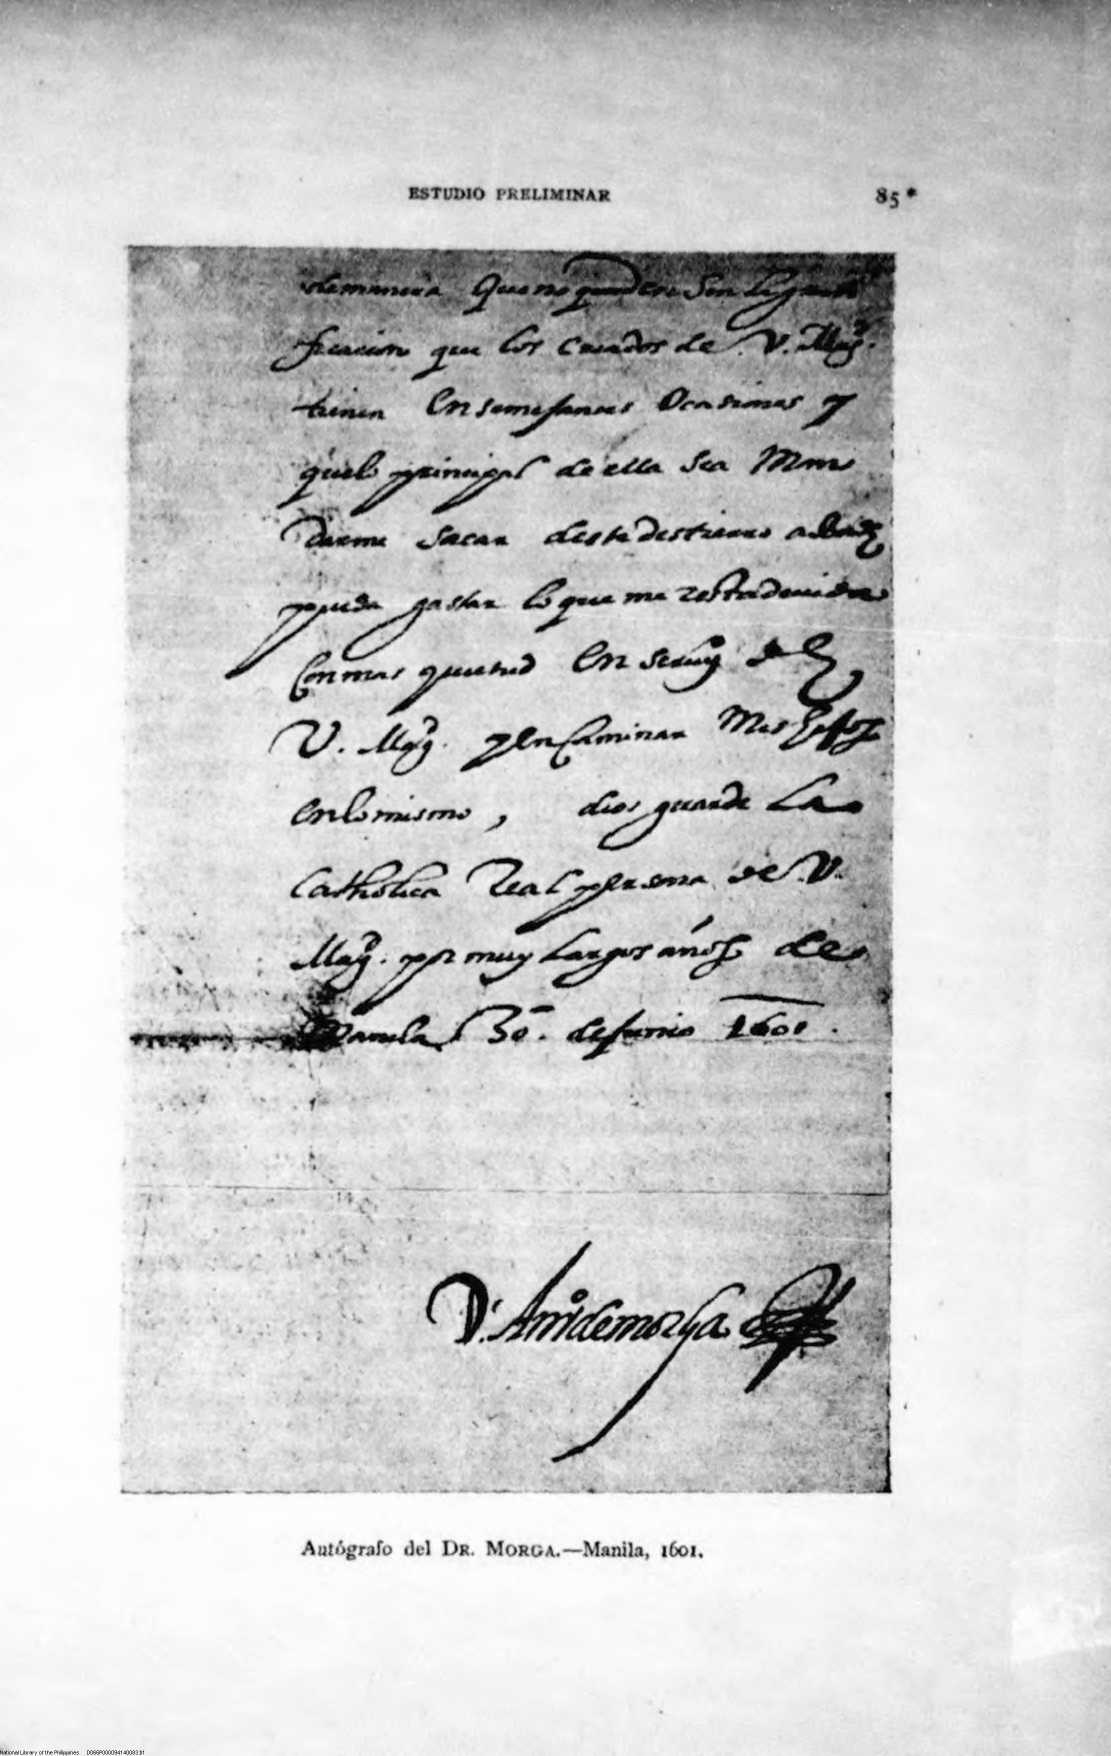 ESTUDIO PRELIMINAR 85*
demanera Que no queden sin la grati
ficacion que los Criados de V. Magᵈ.
tienen En semejantes Ocasiones y
quelo principal de ella sea Man
darme sacar deste destierro a donde
pueda gastar lo que me resta de vida
Con mas quietud En seruiº de
V. Magᵈ. y enCaminar Mis hijos
en lo mismo, dios guarde La
Catholica Real persona de V.
Magᵈ. por muy largos años de
Manila 30. de Junio 1601.
D.ʳ Antº de morga
Autógrafo del DR. MORGA.—Manila, 1601.
National Library of the Philippines